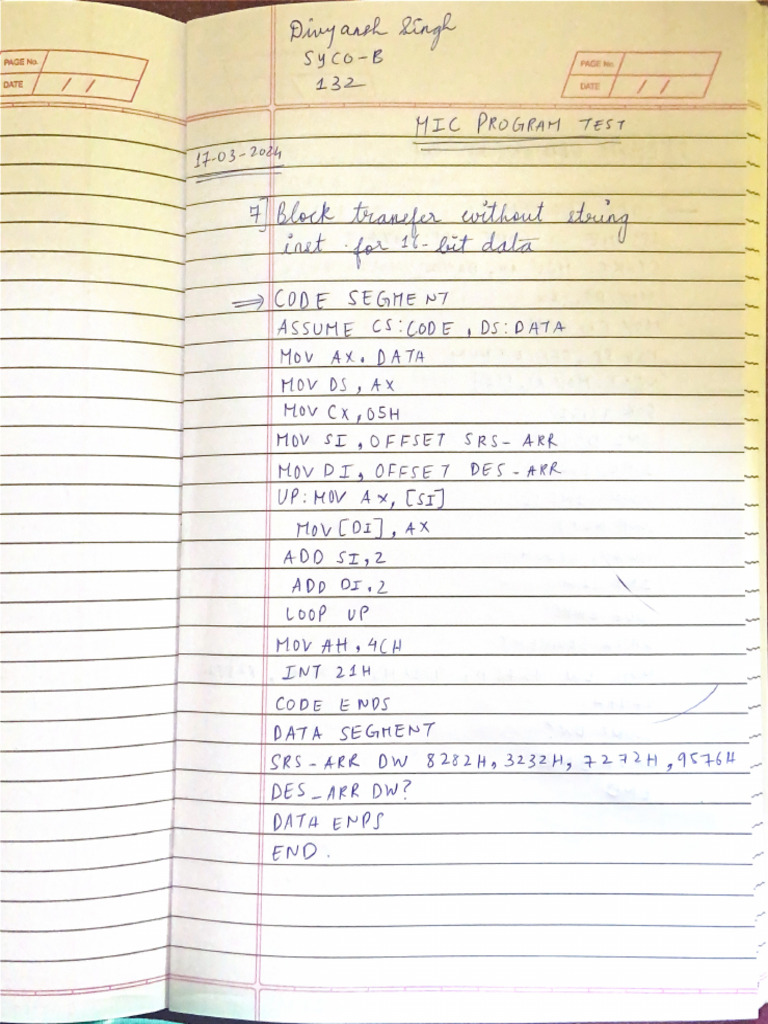 PAGE No.
DATE / /
Divyansh Singh
SYCO-B
132
PAGE No.
DATE / /
MIC PROGRAM TEST
17-03-2024
7] Block transfer without string
inst for 16-bit data
⇒ CODE SEGMENT
ASSUME CS:CODE, DS:DATA
MOV AX, DATA
MOV DS, AX
MOV CX, 05H
MOV SI, OFFSET SRS-ARR
MOV DI, OFFSET DES-ARR
UP: MOV AX, [SI]
MOV [DI], AX
ADD SI, 2
ADD DI, 2
LOOP UP
MOV AH, 4CH
INT 21H
CODE ENDS
DATA SEGMENT
SRS-ARR DW 8282H, 3232H, 7272H, 9576H
DES_ARR DW?
DATA ENDS
END.